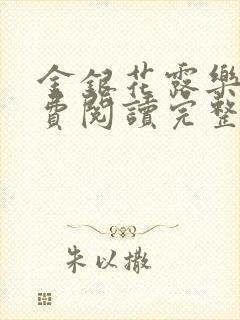 金銀花露樂
費閱讀完整
朱以撒